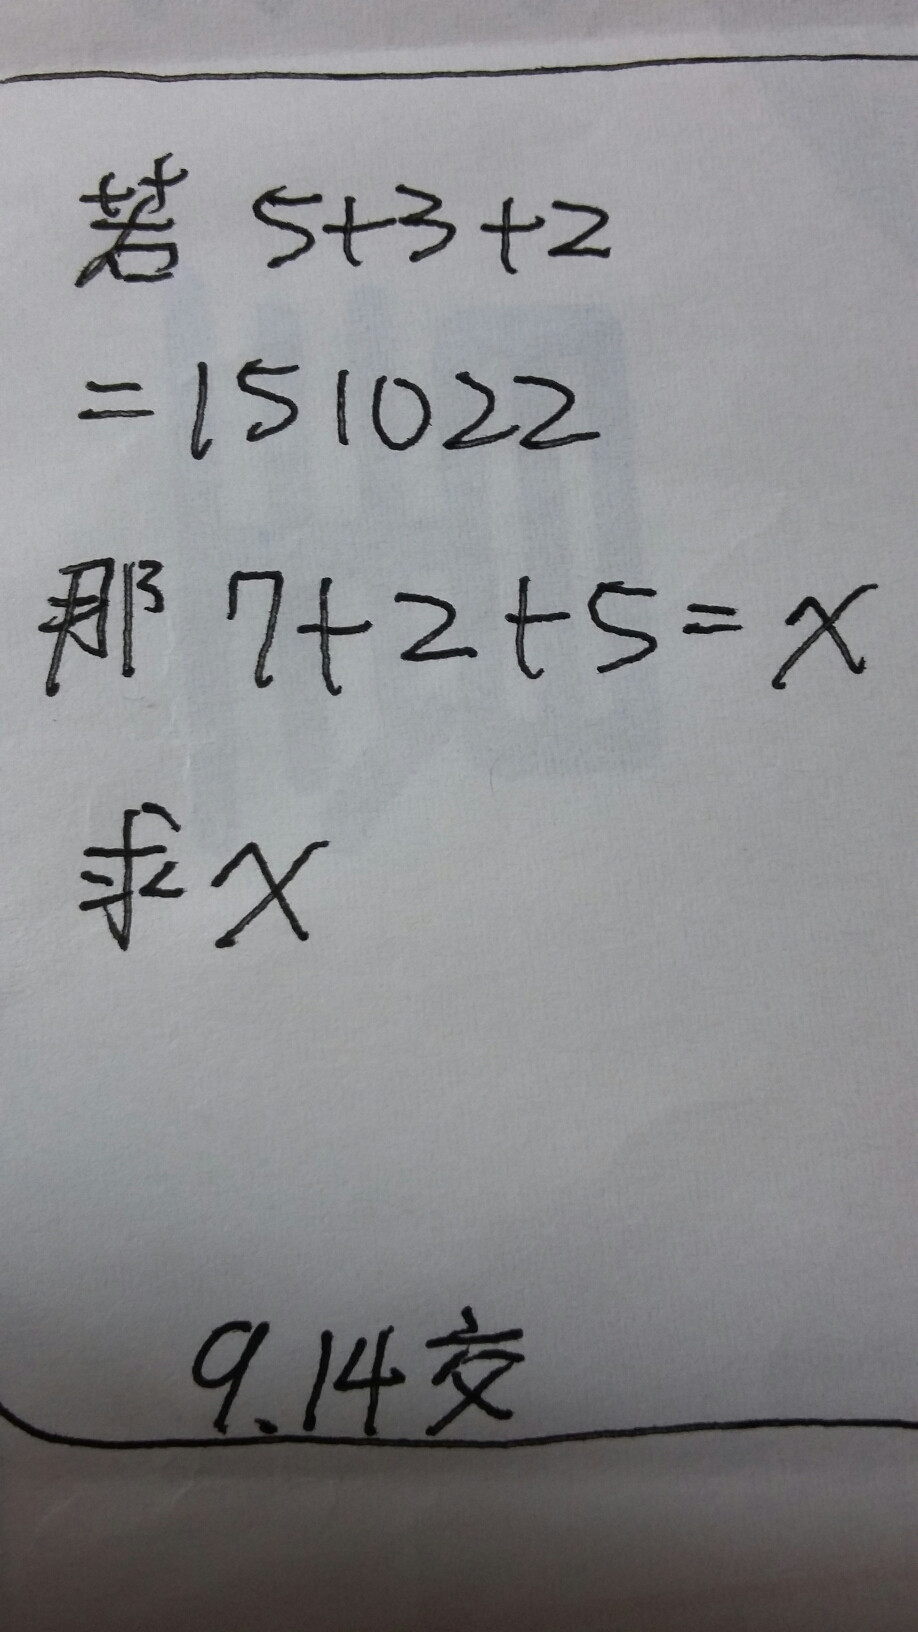 若 5+3+2
=151022
那 7+2+5=x
求x
9.14交